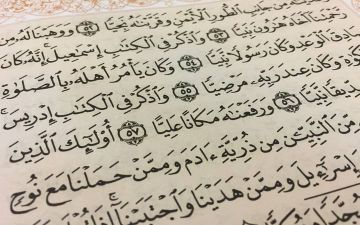 مِن جَانِبِ ٱلطُّورِ ٱلْأَيْمَنِ وَقَرَّبْنَٰهُ نَجِيًّا ٥٢ وَوَهَبْنَا لَهُۥ مِن
رَّحْمَتِنَآ أَخَاهُ هَٰرُونَ نَبِيًّا ٥٣ وَٱذْكُرْ فِى ٱلْكِتَٰبِ إِسْمَٰعِيلَ ۚ إِنَّهُۥ كَانَ
صَادِقَ ٱلْوَعْدِ وَكَانَ رَسُولًا نَّبِيًّا ٥٤ وَكَانَ يَأْمُرُ أَهْلَهُۥ بِٱلصَّلَوٰةِ
وَكَانَ عِندَ رَبِّهِۦ مَرْضِيًّا ٥٥ وَٱذْكُرْ فِى ٱلْكِتَٰبِ إِدْرِيسَ ۚ
صِدِّيقًا نَّبِيًّا ٥٦ وَرَفَعْنَٰهُ مَكَانًا عَلِيًّا ٥٧ أُو۟لَٰٓئِكَ ٱلَّذِينَ
مِّنَ ٱلنَّبِيِّـۧنَ مِن ذُرِّيَّةِ ءَادَمَ وَمِمَّنْ حَمَلْنَا مَعَ نُوحٍ
إِسْرَٰٓءِيلَ وَمِمَّنْ هَدَيْنَا وَٱجْتَبَيْنَآ ۚ إِذَا